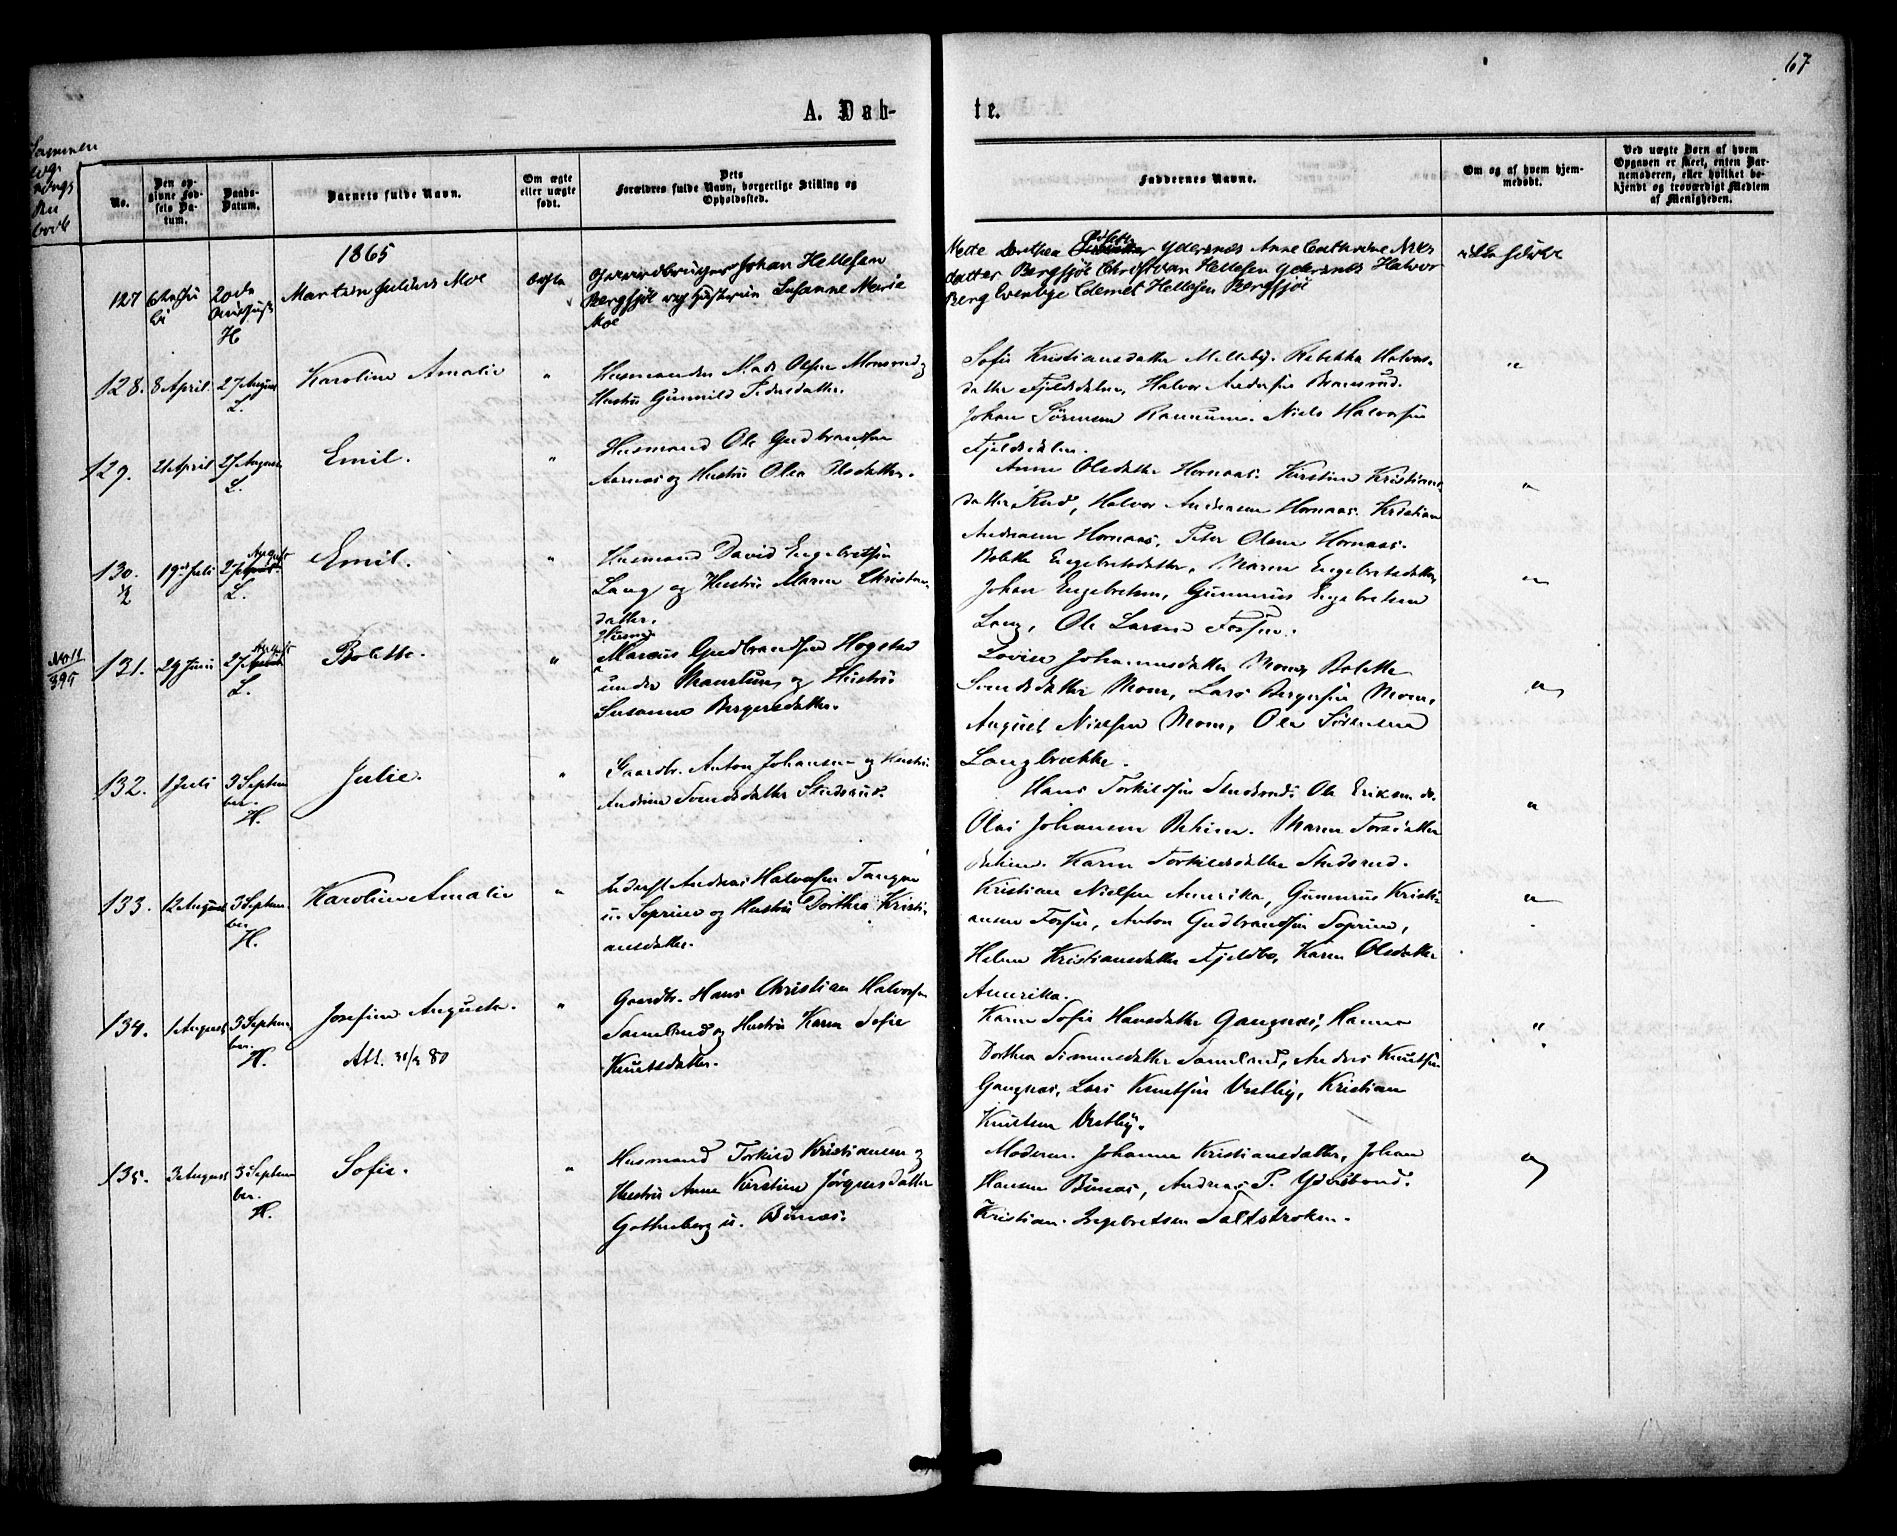 67
A. Døb-
te.
No.
Den op-
givne Fød-
sels Da-
tum.
Daabs-
Datum.
Barnets fulde Navn.
Om ægte
eller uægte
født.
Dets
Forældres fulde Navn, borgerlige Stilling og
Opholdssted.
Faddernes Navne.
Om og af hvem hjem-
medøbt.
Ved uægte Børn af hvem
Opgaven er skeet, enten Bar-
nemoderen, eller hvilket be-
kjendt og troværdigt Medlem
af Menigheden.
1865
127
20de
August
H
Martin Julius Moe
ægte
Gaardbruger Johan Hellesen
Bergsjøl og Hustru Susanne Marie
Moe
Mette Dorthea Ydersnæs Anne Cathrine Niels
datter Bergsjøl Christian Hellesen Ydersnæs Halvor
Berg Clemet Hellesen Bergsjøl
ikke
128. 8 April 27 August
L.
Karoline Amalie
"
Husmanden Mads Olsen og
Hustru Gunnild Pedersdatter.
Sofie Kristiansdatter Melleby. Rebekka Halvors-
datter Fjeldsdalen, Halvor Andersen
Johan Sørensen Niels Halvorsen
Fjeldsdalen.
"
129. 21 April 27 August
L.
Emil.
"
Husmand Ole Gudbrandsen
Aarnæs og Hustru Olea Olsdatter.
Anne Olsdatter Hornaas. Kirstine Kristians-
datter Rud, Halvor Andersen Hornaas. Kristian
Andersen Hornaas, Peter Olsen Hornaas.
"
130. 19de Juli 27 August
L.
Emil.
"
Husmand David Engebretsen
Lang og Hustru Maren Christians-
datter.
Bolette Engebretsdatter, Maren Engebretsdatter
Johan Engebretsen, Gunnerius Engebretsen
Lang, Ole Larsen Fossen.
"
131. 29 Juni 27 August
L.
Bolette.
"
Marcus Gudbrandsen Hogstad
under og Hustru
Susanne Bergersdatter.
Lovise Johannesdatter Moen, Bolette
Svendsdatter Moen, Lars Bergersen Moen,
August Nielsen Moen, Ole Sørensen
Langbrække.
"
132. 1 Juli 3 Septem-
ber.
H.
Julie.
"
Gaardb. Anton Johansen og Hustru
Andrine Svendsdatter Studsrud.
Hans Torkildsen Studsrud. Ole Eriksen do.
Olai Johansen Maren
Karen Torkildsdatter Studsrud.
"
133. 12 August 3 Septem-
ber.
H.
Karoline Amalie
"
Inderst Andreas Halvorsen Tangen
u. Soprim og Hustru Dorthea Kristi-
ansdatter.
Kristian Nielsen Amerika, Gunnerius Kristi-
ansen Fossen, Anton Gudbrandsen Soprim,
Helene Kristiansdatter Fjeldbo, Karen Olsdatter
Amerika.
"
134. 1 August 3 Septem-
ber.
H.
Josefine Augusta.
Att. 80
"
Gaardb. Hans Christian Halvorsen
og Hustru Karen Sofie
Knutsdatter.
Karen Sofie Hansdatter Gangnæs, Hanna
Dorthea Simensdatter Anders Knutsen
Gangnæs, Lars Knutsen Vestby, Kristian
Knutsen Vestby.
"
135. 3 August 3 Septem-
ber.
H.
Sofie.
"
Husmand Torkild Kristiansen og
Hustru Anne Kirstine Jørgensdatter
Gothenborg u. Bunæs.
Moderen. Johanne Kristiansdatter, Johan
Hansen Bunæs, Andreas P. Ydersbond.
Kristian Ingebretsen Saltstroken.
"